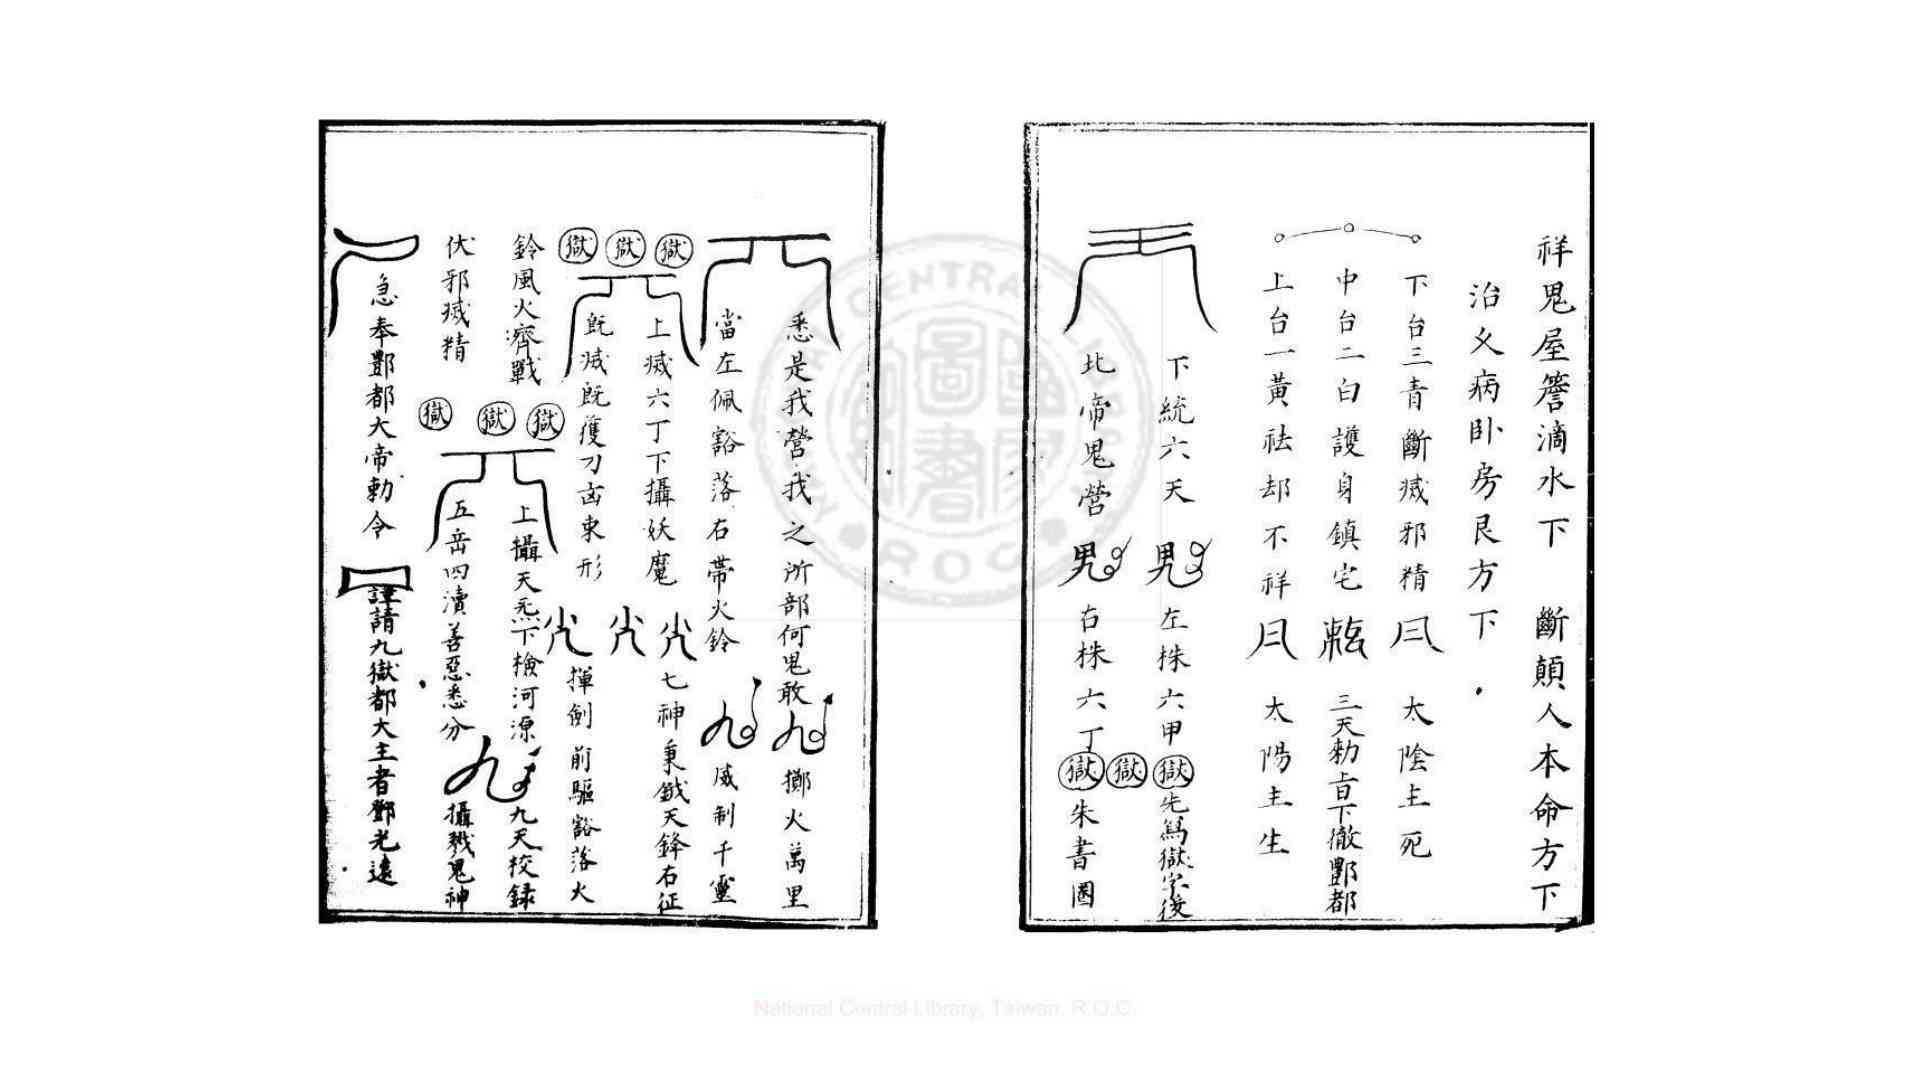 祥鬼屋簷滴水下　斷顛人本命方下
治久病卧房艮方下
下台三青斷滅邪精　太陰主死
中台二白護身鎮宅　三天勅旨下徹酆都
上台一黃祛却不祥　太陽主生
下統六天　左株六甲　獄　先爲獄字後
獄
北帝鬼營　右株六丁　獄　朱書圈
悉是我營我之所部何鬼敢　擲火萬里
當左佩豁落右帶火鈴　威制千靈
獄　獄　獄
上滅六丁下攝妖魔　七神秉鉞天鋒右征
既滅既獲刀凶束形　揮劍前驅豁落火
鈴風火齊戰
伏邪滅精
獄　獄　獄
上攝天炁下檢河源　九天校録
五岳四瀆善惡悉分　攝戮鬼神
急奉酆都大帝勅令　謹請九獄都大主者鄧光遠
National Central Library, Taiwan, R.O.C.